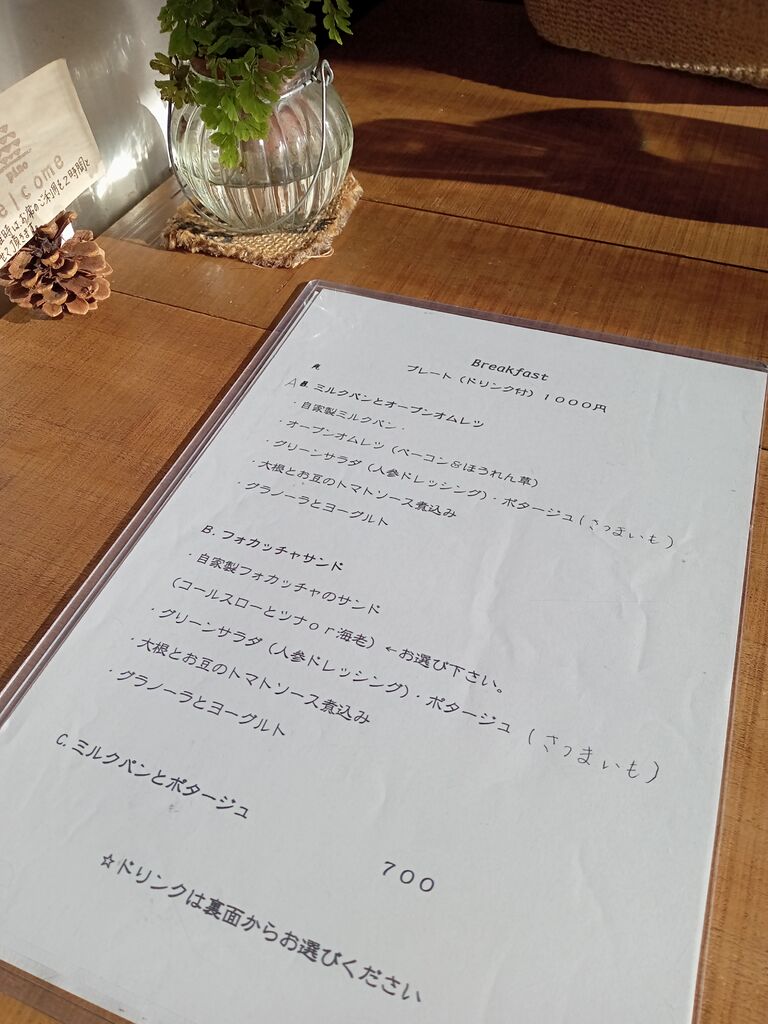 pino
elcome
Breakfast
プレート（ドリンク付）１０００円
A ミルクパンとオープンオムレツ
・自家製ミルクパン・
・オープンオムレツ（ベーコン＆ほうれん草）
・グリーンサラダ（人参ドレッシング）・ポタージュ(さつまいも)
・大根とお豆のトマトソース煮込み
・グラノーラとヨーグルト
B. フォカッチャサンド
・自家製フォカッチャのサンド
（コールスローとツナｏｒ海老）←お選び下さい。
・グリーンサラダ（人参ドレッシング）・ポタージュ (さつまいも)
・大根とお豆のトマトソース煮込み
・グラノーラとヨーグルト
C. ミルクパンとポタージュ
７００
☆ドリンクは裏面からお選びください